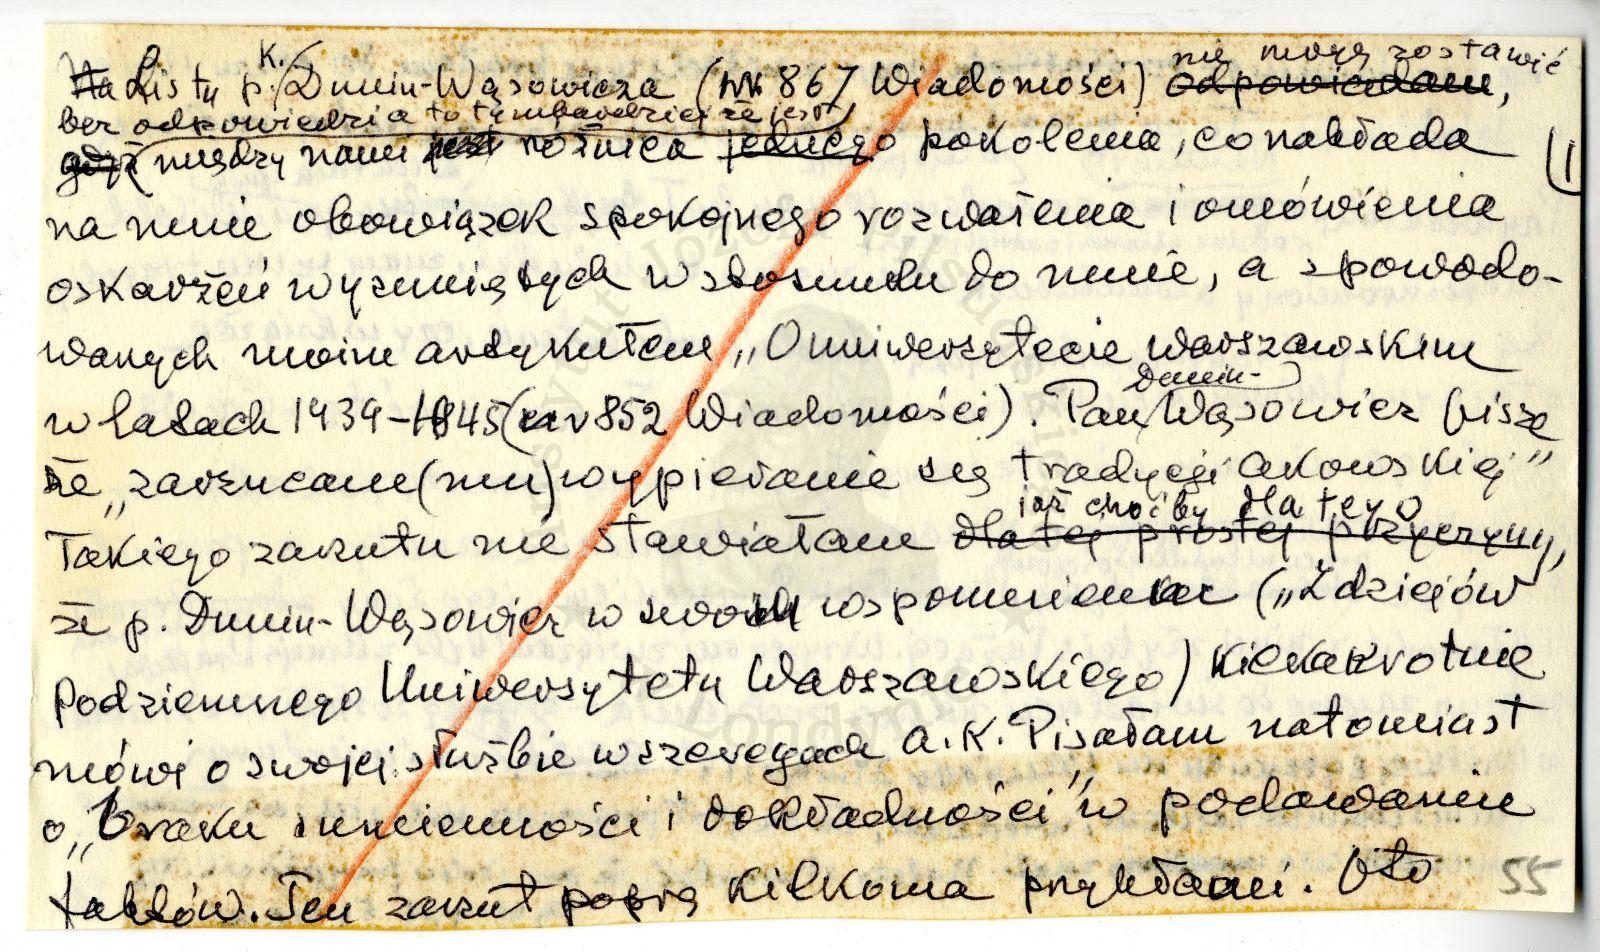 nie mogę zostawić
K.
Na Listu p. Dunin-Wąsowicza (nr 867 Wiadomości) odpowiadam,
bez odpowiedzi a to tymbardziej że jest
gdyż między nami jest różnica jednego pokolenia, co nakłada
1
na mnie obowiązek spokojnego rozważenia i omówienia
oskarżeń wysuniętych w stosunku do mnie, a spowodo-
wanych moim artykułem „O uniwersytecie warszawskim
Dunin-
w latach 1939-1945 (nr 852 Wiadomości). Pan Wąsowicz pisze
że „zarzucam (mu) wypieranie się tradycji akowskiej"
już choćby dlatego
Takiego zarzutu nie stawiałam dla tej prostej przyczyny,
że p. Dunin-Wąsowicz w swoich wspomnieniach („Z dziejów
Podziemnego Uniwersytetu Warszawskiego) kilkakrotnie
mówi o swojej służbie w szeregach A.K. Pisałam natomiast
o „braku sumienności i dokładności" w podawaniu
faktów. Ten zarzut poprę kilkoma przykładami. Oto
55
Instytut Józefa Piłsudskiego
w Londynie